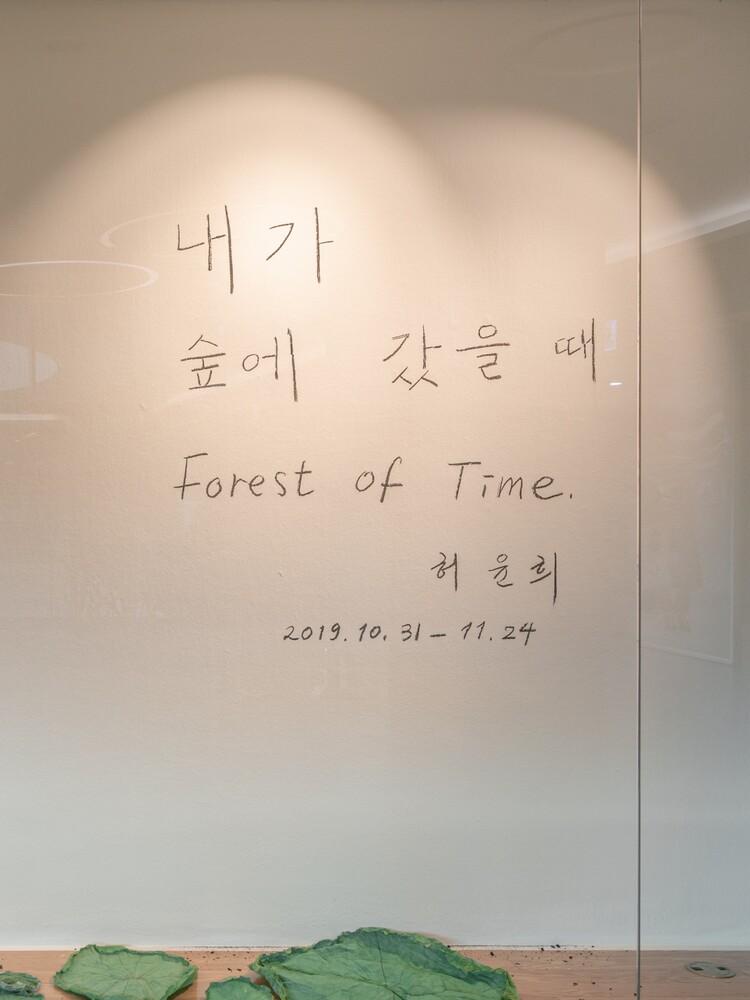 내가
숲에 갔을 때
Forest of Time.
허윤희
2019.10.31 – 11.24